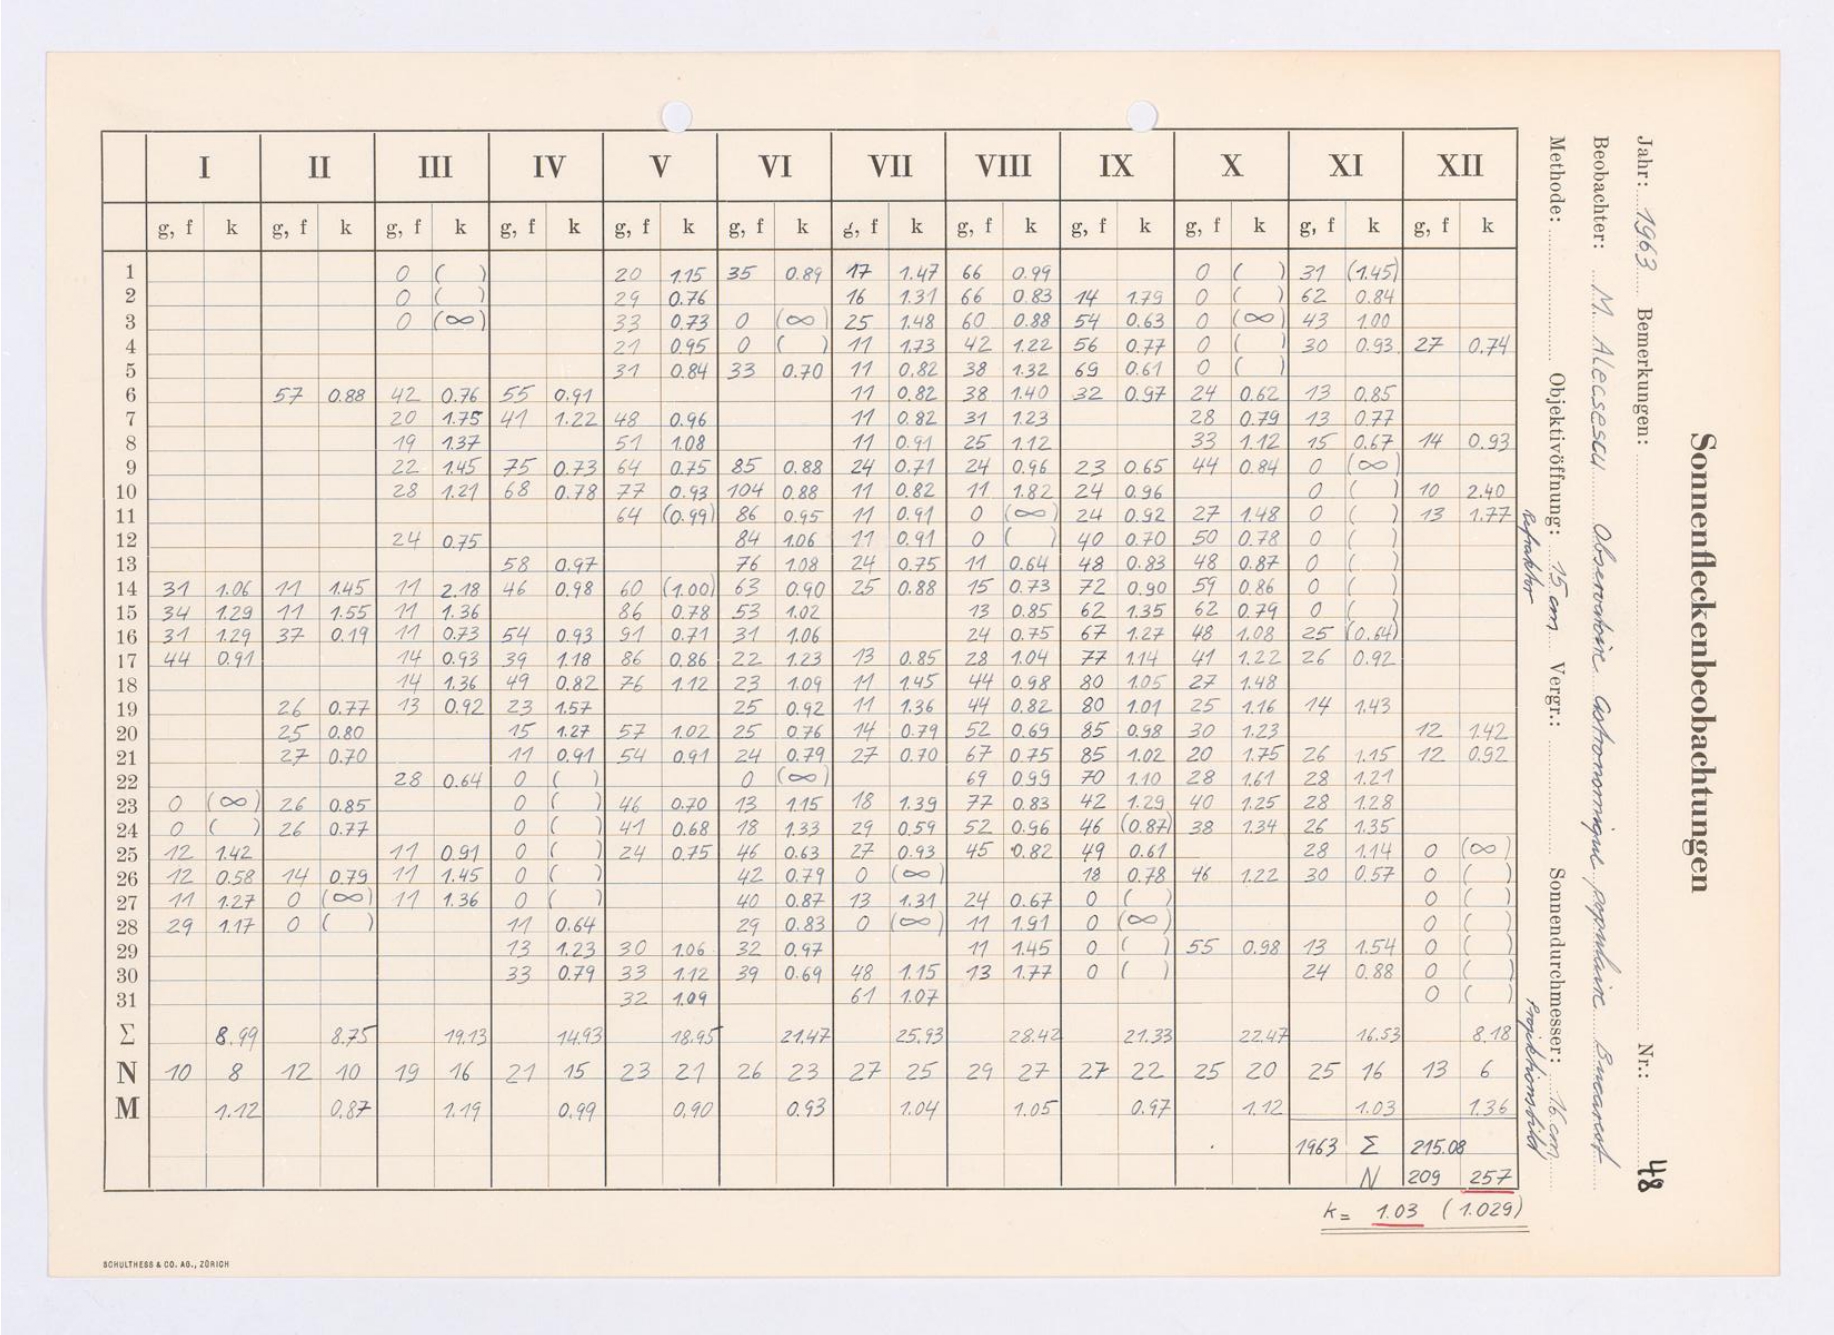 Sonnenfleckenbeobachtungen
Jahr: 1963 Bemerkungen: Nr.: 48
Beobachter: M. Alecsescu Observatoire Astronomique populaire Bucarest
Methode: Objektivöffnung: 15 cm Vergr.: Sonnendurchmesser: 16 cm
Refraktor Projektionsbild
I II III IV V VI VII VIII IX X XI XII
g, f k g, f k g, f k g, f k g, f k g, f k g, f k g, f k g, f k g, f k g, f k g, f k
1 0 ( ) 20 1.15 35 0.89 17 1.47 66 0.99 0 ( ) 31 (1.45)
2 0 ( ) 29 0.76 16 1.31 66 0.83 14 1.79 0 ( ) 62 0.84
3 0 (∞) 33 0.73 0 (∞) 25 1.48 60 0.88 54 0.63 0 (∞) 43 1.00
4 21 0.95 0 ( ) 11 1.73 42 1.22 56 0.77 0 ( ) 30 0.93 27 0.74
5 31 0.84 33 0.70 11 0.82 38 1.32 69 0.61 0 ( )
6 57 0.88 42 0.76 55 0.91 11 0.82 38 1.40 32 0.97 24 0.62 13 0.85
7 20 1.75 41 1.22 48 0.96 11 0.82 31 1.23 28 0.79 13 0.77
8 19 1.37 51 1.08 11 0.91 25 1.12 33 1.12 15 0.67 14 0.93
9 22 1.45 75 0.73 64 0.75 85 0.88 24 0.71 24 0.96 23 0.65 44 0.84 0 (∞)
10 28 1.21 68 0.78 77 0.93 104 0.88 11 0.82 11 1.82 24 0.96 0 ( ) 10 2.40
11 64 (0.99) 86 0.95 11 0.91 0 (∞) 24 0.92 27 1.48 0 ( ) 13 1.77
12 24 0.75 84 1.06 11 0.91 0 ( ) 40 0.70 50 0.78 0 ( )
13 58 0.97 76 1.08 24 0.75 11 0.64 48 0.83 48 0.87 0 ( )
14 31 1.06 11 1.45 11 2.18 46 0.98 60 (1.00) 63 0.90 25 0.88 15 0.73 72 0.90 59 0.86 0 ( )
15 34 1.29 11 1.55 11 1.36 86 0.78 53 1.02 13 0.85 62 1.35 62 0.79 0 ( )
16 31 1.29 37 0.19 11 0.73 54 0.93 91 0.71 31 1.06 24 0.75 67 1.27 48 1.08 25 (0.64)
17 44 0.91 14 0.93 39 1.18 86 0.86 22 1.23 13 0.85 28 1.04 77 1.14 41 1.22 26 0.92
18 14 1.36 49 0.82 76 1.12 23 1.09 11 1.45 44 0.98 80 1.05 27 1.48
19 26 0.77 13 0.92 23 1.57 25 0.92 11 1.36 44 0.82 80 1.01 25 1.16 14 1.43
20 25 0.80 15 1.27 57 1.02 25 0.76 14 0.79 52 0.69 85 0.98 30 1.23 12 1.42
21 27 0.70 11 0.91 54 0.91 24 0.79 27 0.70 67 0.75 85 1.02 20 1.75 26 1.15 12 0.92
22 28 0.64 0 ( ) 0 (∞) 69 0.99 70 1.10 28 1.61 28 1.21
23 0 (∞) 26 0.85 0 ( ) 46 0.70 13 1.15 18 1.39 77 0.83 42 1.29 40 1.25 28 1.28
24 0 ( ) 26 0.77 0 ( ) 41 0.68 18 1.33 29 0.59 52 0.96 46 (0.87) 38 1.34 26 1.35
25 12 1.42 11 0.91 0 ( ) 24 0.75 46 0.63 27 0.93 45 0.82 49 0.61 28 1.14 0 (∞)
26 12 0.58 14 0.79 11 1.45 0 ( ) 42 0.79 0 (∞) 18 0.78 46 1.22 30 0.57 0 ( )
27 11 1.27 0 (∞) 11 1.36 0 ( ) 40 0.87 13 1.31 24 0.67 0 ( ) 0 ( )
28 29 1.17 0 ( ) 11 0.64 29 0.83 0 (∞) 11 1.91 0 (∞) 0 ( )
29 13 1.23 30 1.06 32 0.97 11 1.45 0 ( ) 55 0.98 13 1.54 0 ( )
30 33 0.79 33 1.12 39 0.69 48 1.15 13 1.77 0 ( ) 24 0.88 0 ( )
31 32 1.09 61 1.07 0 ( )
Σ 8.99 8.75 19.13 14.93 18.95 21.47 25.93 28.42 21.33 22.47 16.53 8.18
N 10 8 12 10 19 16 21 15 23 21 26 23 27 25 29 27 27 22 25 20 25 16 13 6
M 1.12 0.87 1.19 0.99 0.90 0.93 1.04 1.05 0.97 1.12 1.03 1.36
1963 Σ 215.08
N 209 257
k= 1.03 (1.029)
SCHULTHESS & CO. AG., ZÜRICH